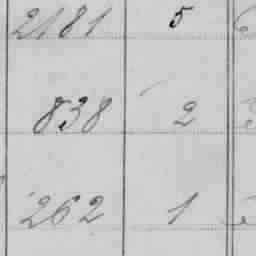 2181 5
838 2
262 1